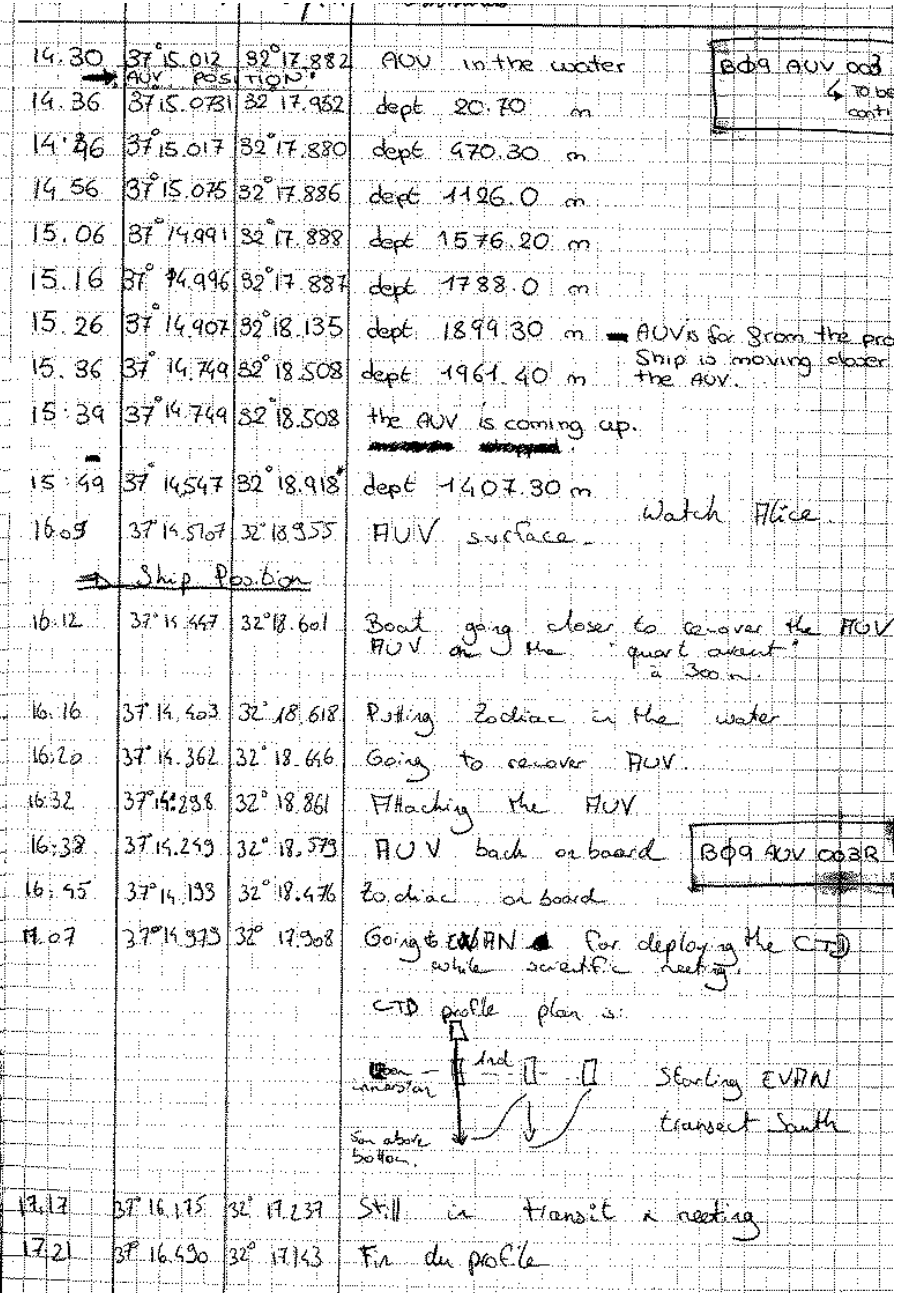 14.30 37°15.012 32°17.882 AUV in the water B09 AUV 003
➔ AUV POSITION: ↳ to be
14.36 3715.0731 32 17.952 dept 20.70 m conti
14.46 37°15.017 32°17.880 dept 470.30 m
14.56 37°15.075 32°17.886 dept 1126.0 m
15.06 37°14.991 32°17.888 dept 1576.20 m
15.16 37°14.996 32°17.887 dept 1788.0 m
15.26 37°14.907 32°18.135 dept 1899.30 m – AUV is far from the pro
Ship is moving closer
15.36 37°14.749 32°18.508 dept 1961.40 m the AUV.
15:39 37°14.749 32°18.508 the AUV is coming up.
15:49 37°14,547 32°18.918 dept 1407.30 m
Watch Alice
16.09 37°14.5107 32°18.955 AUV surface -
⇒ Ship Position
16:12 37°14.447 32°18.601 Boat going closer to recover the AUV
AUV on the "quart avant"
à 300 m.
16.16 37°14.403 32°18.618 Putting Zodiac in the water
16:20 37°14.362 32°18.646 Going to recover AUV.
16:32 37°14.298 32°18.861 Attaching the AUV
16:38 37°14.249 32°18.579 AUV back onboard B09 AUV 003R
16:45 37°14,193 32°18.476 Zodiac on board
17.07 37°14.979 32°17.908 Going to EVAN for deploying the CTD
while scientific meeting.
CTD profile plan is:
2nd
Starting EVAN
transect South
5m above
bottom.
17.17 37°16.175 32°17.237 Still in transit & meeting
17:21 37°16.490 32°17.143 Fin du profile